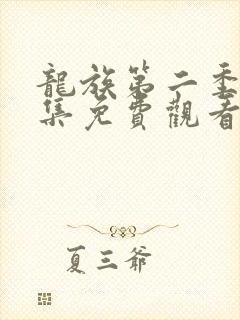 龍族第二季
集免費觀看
夏三爺